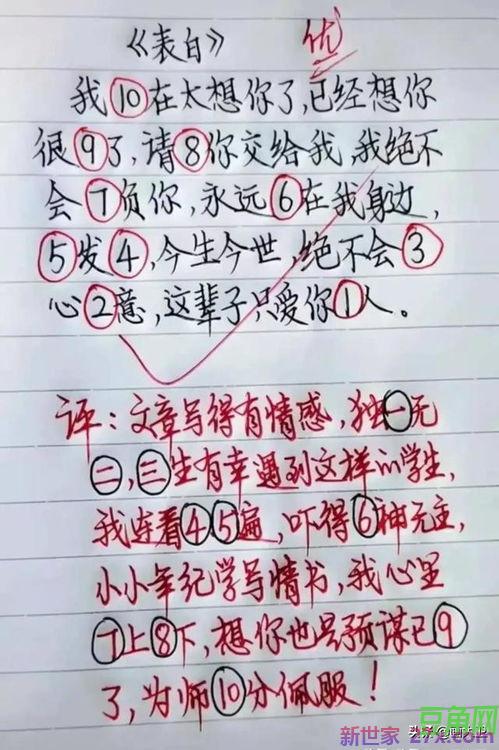 《表白》 优
我⑩在太想你了,已经想你
很⑨了,请⑧你交给我,我绝不
会⑦负你,永远⑥在我身边,
⑤发④,今生今世,绝不会③
心②意,这辈子只爱你①人。
评:文章写得有情感,独㊀无
㊁,㊂生有幸遇到这样的学生,
我连看④⑤遍,吓得⑥神无主,
小小年纪学写情书,我心里
⑦上⑧下,想你也是预谋已⑨
了,为师⑩分佩服!
豆角网
头条
新世家 27x.com